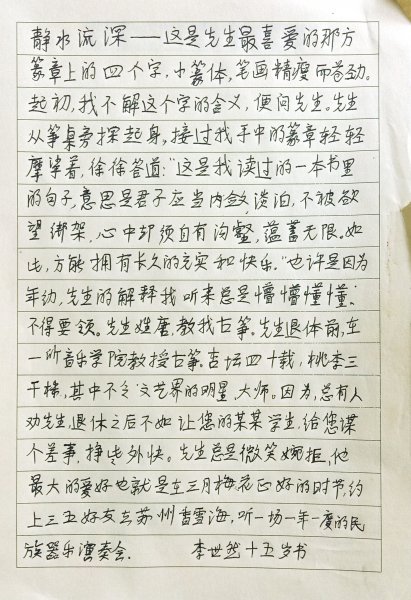 静水流深——这是先生最喜爱的那方
篆章上的四个字,小篆体,笔画精瘦而苍劲。
起初,我不解这个字的含义,便问先生。先生
从筝桌旁探起身,接过我手中的篆章轻轻
摩挲着,徐徐答道:“这是我读过的一本书里
的句子,意思是君子应当内敛淡泊,不被欲
望绑架,心中却须自有沟壑,蕴蓄无限。如
此,方能拥有长久的充实和快乐。”也许是因为
年幼,先生的解释我听来总是懵懵懂懂,
不得要领。先生姓唐,教我古筝。先生退休前,在
一所音乐学院教授古筝。杏坛四十载,桃李三
千株,其中不乏文艺界的明星、大师。因为,总有人
劝先生,退休之后不如让您的某某学生,给您谋
个差事,挣些外快。先生总是微笑婉拒,他
最大的爱好也就是在三月梅花正好的时节,约
上三五好友去苏州香雪海,听一场一年一度的民
族器乐演奏会.
李世然十五岁书